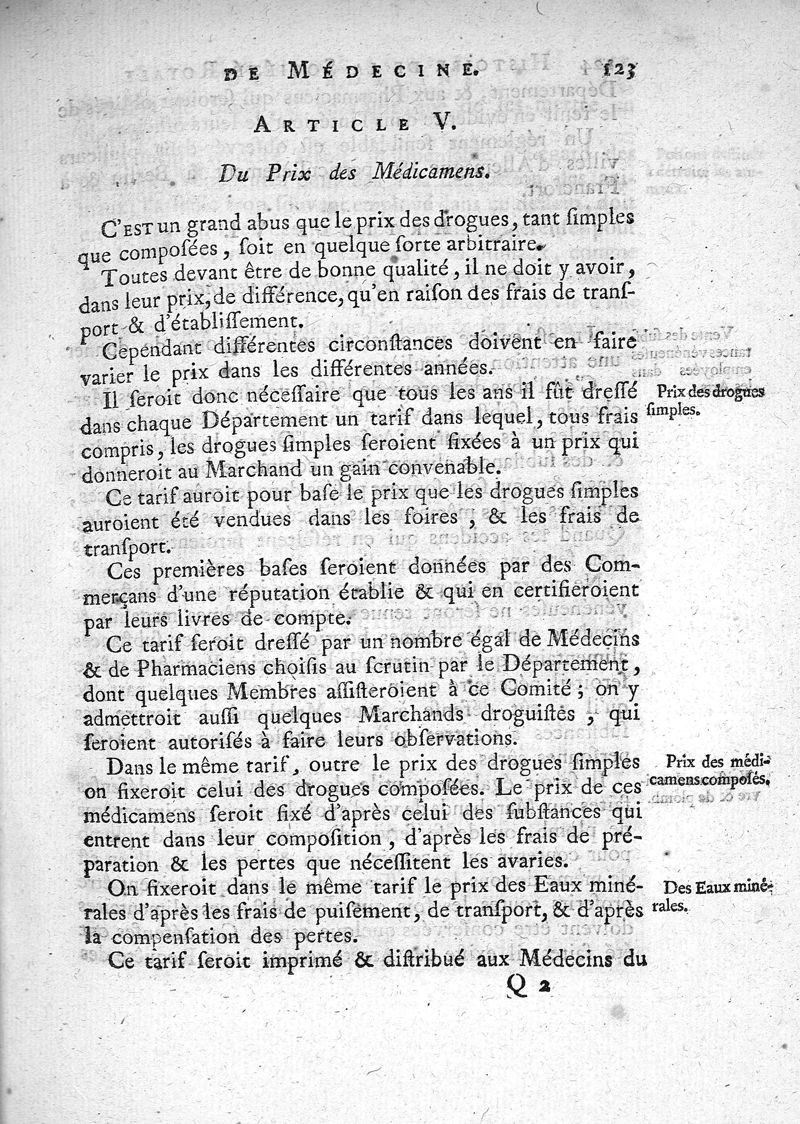 DE MÉDECINE. 123
ARTICLE V.
Du Prix des Médicamens.
C'EST un grand abus que le prix des drogues, tant ſimples
que compoſées, ſoit en quelque ſorte arbitraire.
Toutes devant être de bonne qualité, il ne doit y avoir,
dans leur prix, de différence, qu'en raiſon des frais de tranſ-
port & d'établiſſement.
Cependant différentes circonſtances doivent en faire
varier le prix dans les différentes années.
Il ſeroit donc néceſſaire que tous les ans il fût dreſſé
Prix des drogues
dans chaque Département un tarif dans lequel, tous frais
ſimples.
compris, les drogues ſimples ſeroient fixées à un prix qui
donneroit au Marchand un gain convenable.
Ce tarif auroit pour baſe le prix que les drogues ſimples
auroient été vendues dans les foires, & les frais de
tranſport.
Ces premières baſes ſeroient données par des Com-
merçans d'une réputation établie & qui en certifieroient
par leurs livres de compte.
Ce tarif ſeroit dreſſé par un nombre égal de Médecins
& de Pharmaciens choiſis au ſcrutin par le Département,
dont quelques Membres aſſiſteroient à ce Comité; on y
admettroit auſſi quelques Marchands droguiſtes, qui
ſeroient autoriſés à faire leurs obſervations.
Dans le même tarif, outre le prix des drogues ſimples
Prix des médi-
on fixeroit celui des drogues compoſées. Le prix de ces
camens compoſés.
médicamens ſeroit fixé d'après celui des ſubſtances qui
entrent dans leur compoſition, d'après les frais de pré-
paration & les pertes que néceſſitent les avaries.
On fixeroit dans le même tarif le prix des Eaux miné-
Des Eaux miné-
rales d'après les frais de puiſement, de tranſport, & d'après
rales.
la compenſation des pertes.
Ce tarif ſeroit imprimé & diſtribué aux Médecins du
Q 2